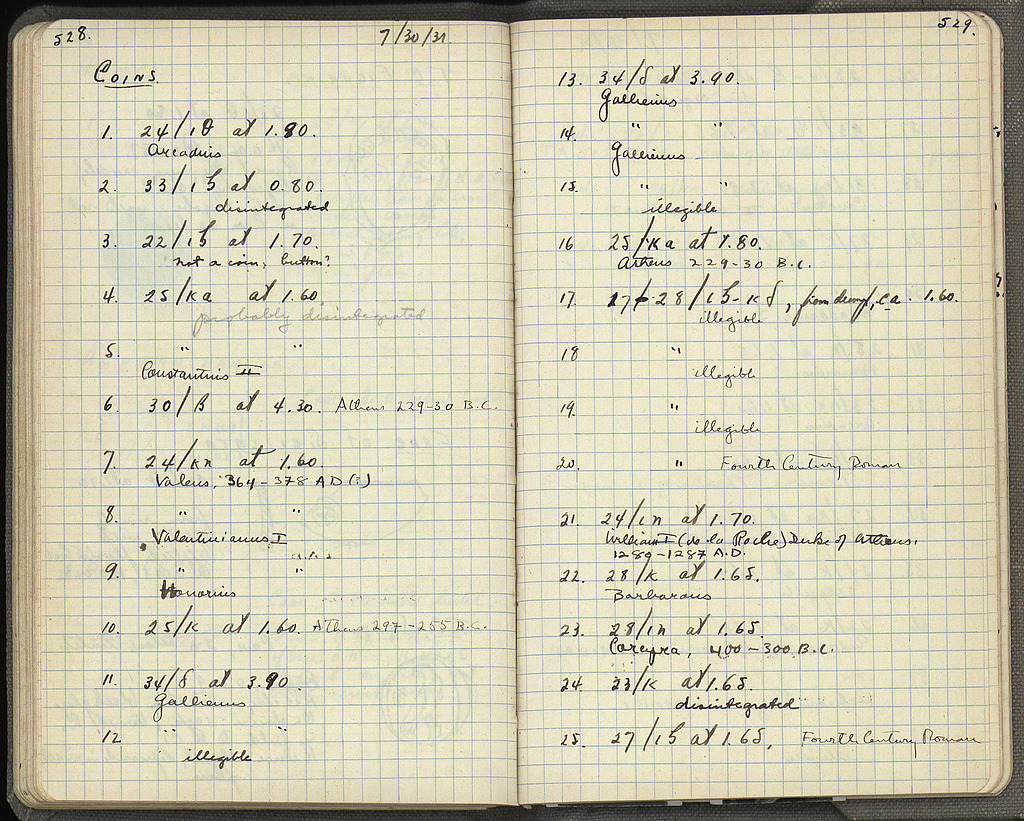 528.
7/30/31.
COINS.
1. 24/ιθ at 1.80.
Arcadius
2. 33/ις at 0.80.
disintegrated
3. 22/ις at 1.70.
not a coin; button?
4. 25/κα at 1.60
probably disintegrated
5. " "
Constantius II
6. 30/β at 4.30. Athens 229-30 B.C.
7. 24/κη at 1.60.
Valens, 364-378 AD (?)
8. " "
Valentinianus I
9. " "
Honorius
10. 25/κ at 1.60. Athens 297-255 B.C.
11. 34/δ at 3.90.
Gallienus
12 " "
illegible
529.
13. 34/δ at 3.90.
Gallienus
14. " "
Gallienus
15. " "
illegible
16 25/κα at 1.80.
Athens 229-30 B.C.
17. 27-28/ις-κδ, from dump, ca. 1.60.
illegible
18 "
illegible
19. "
illegible
20. " Fourth Century Roman
21. 24/ιη at 1.70.
William I (de la Roche) Duke of Athens.
1280-1287 A.D.
22. 28/κ at 1.65.
Barbarous
23. 28/ιη at 1.65.
Corcyra, 400-300 B.C.
24. 23/κ at 1.65.
disintegrated
25. 27/ις at 1.65, Fourth Century Roman